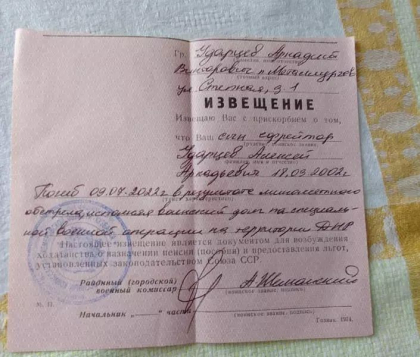 Гр. Ударцев Аркадий
п. Металлургов
ул. Степная, 3-1
ИЗВЕЩЕНИЕ
Извещаю Вас с прискорбием о том,
что Ваш сын ефрейтор
Ударцев Алексей
Аркадьевич 18.03.2002г
Погиб 09.07.2022г в результате минометного
обстрела, исполняя воинский долг на специаль-
ной военной операции на территории ДНР
Настоящее извещение является документом для возбуждения
ходатайства о назначении пенсии (пособия) и предоставления льгот,
установленных законодательством Союза ССР.
Районный (городской)
военный комиссар
(воинское звание, подпись)
Начальник „——“ части
(воинское звание, подпись)